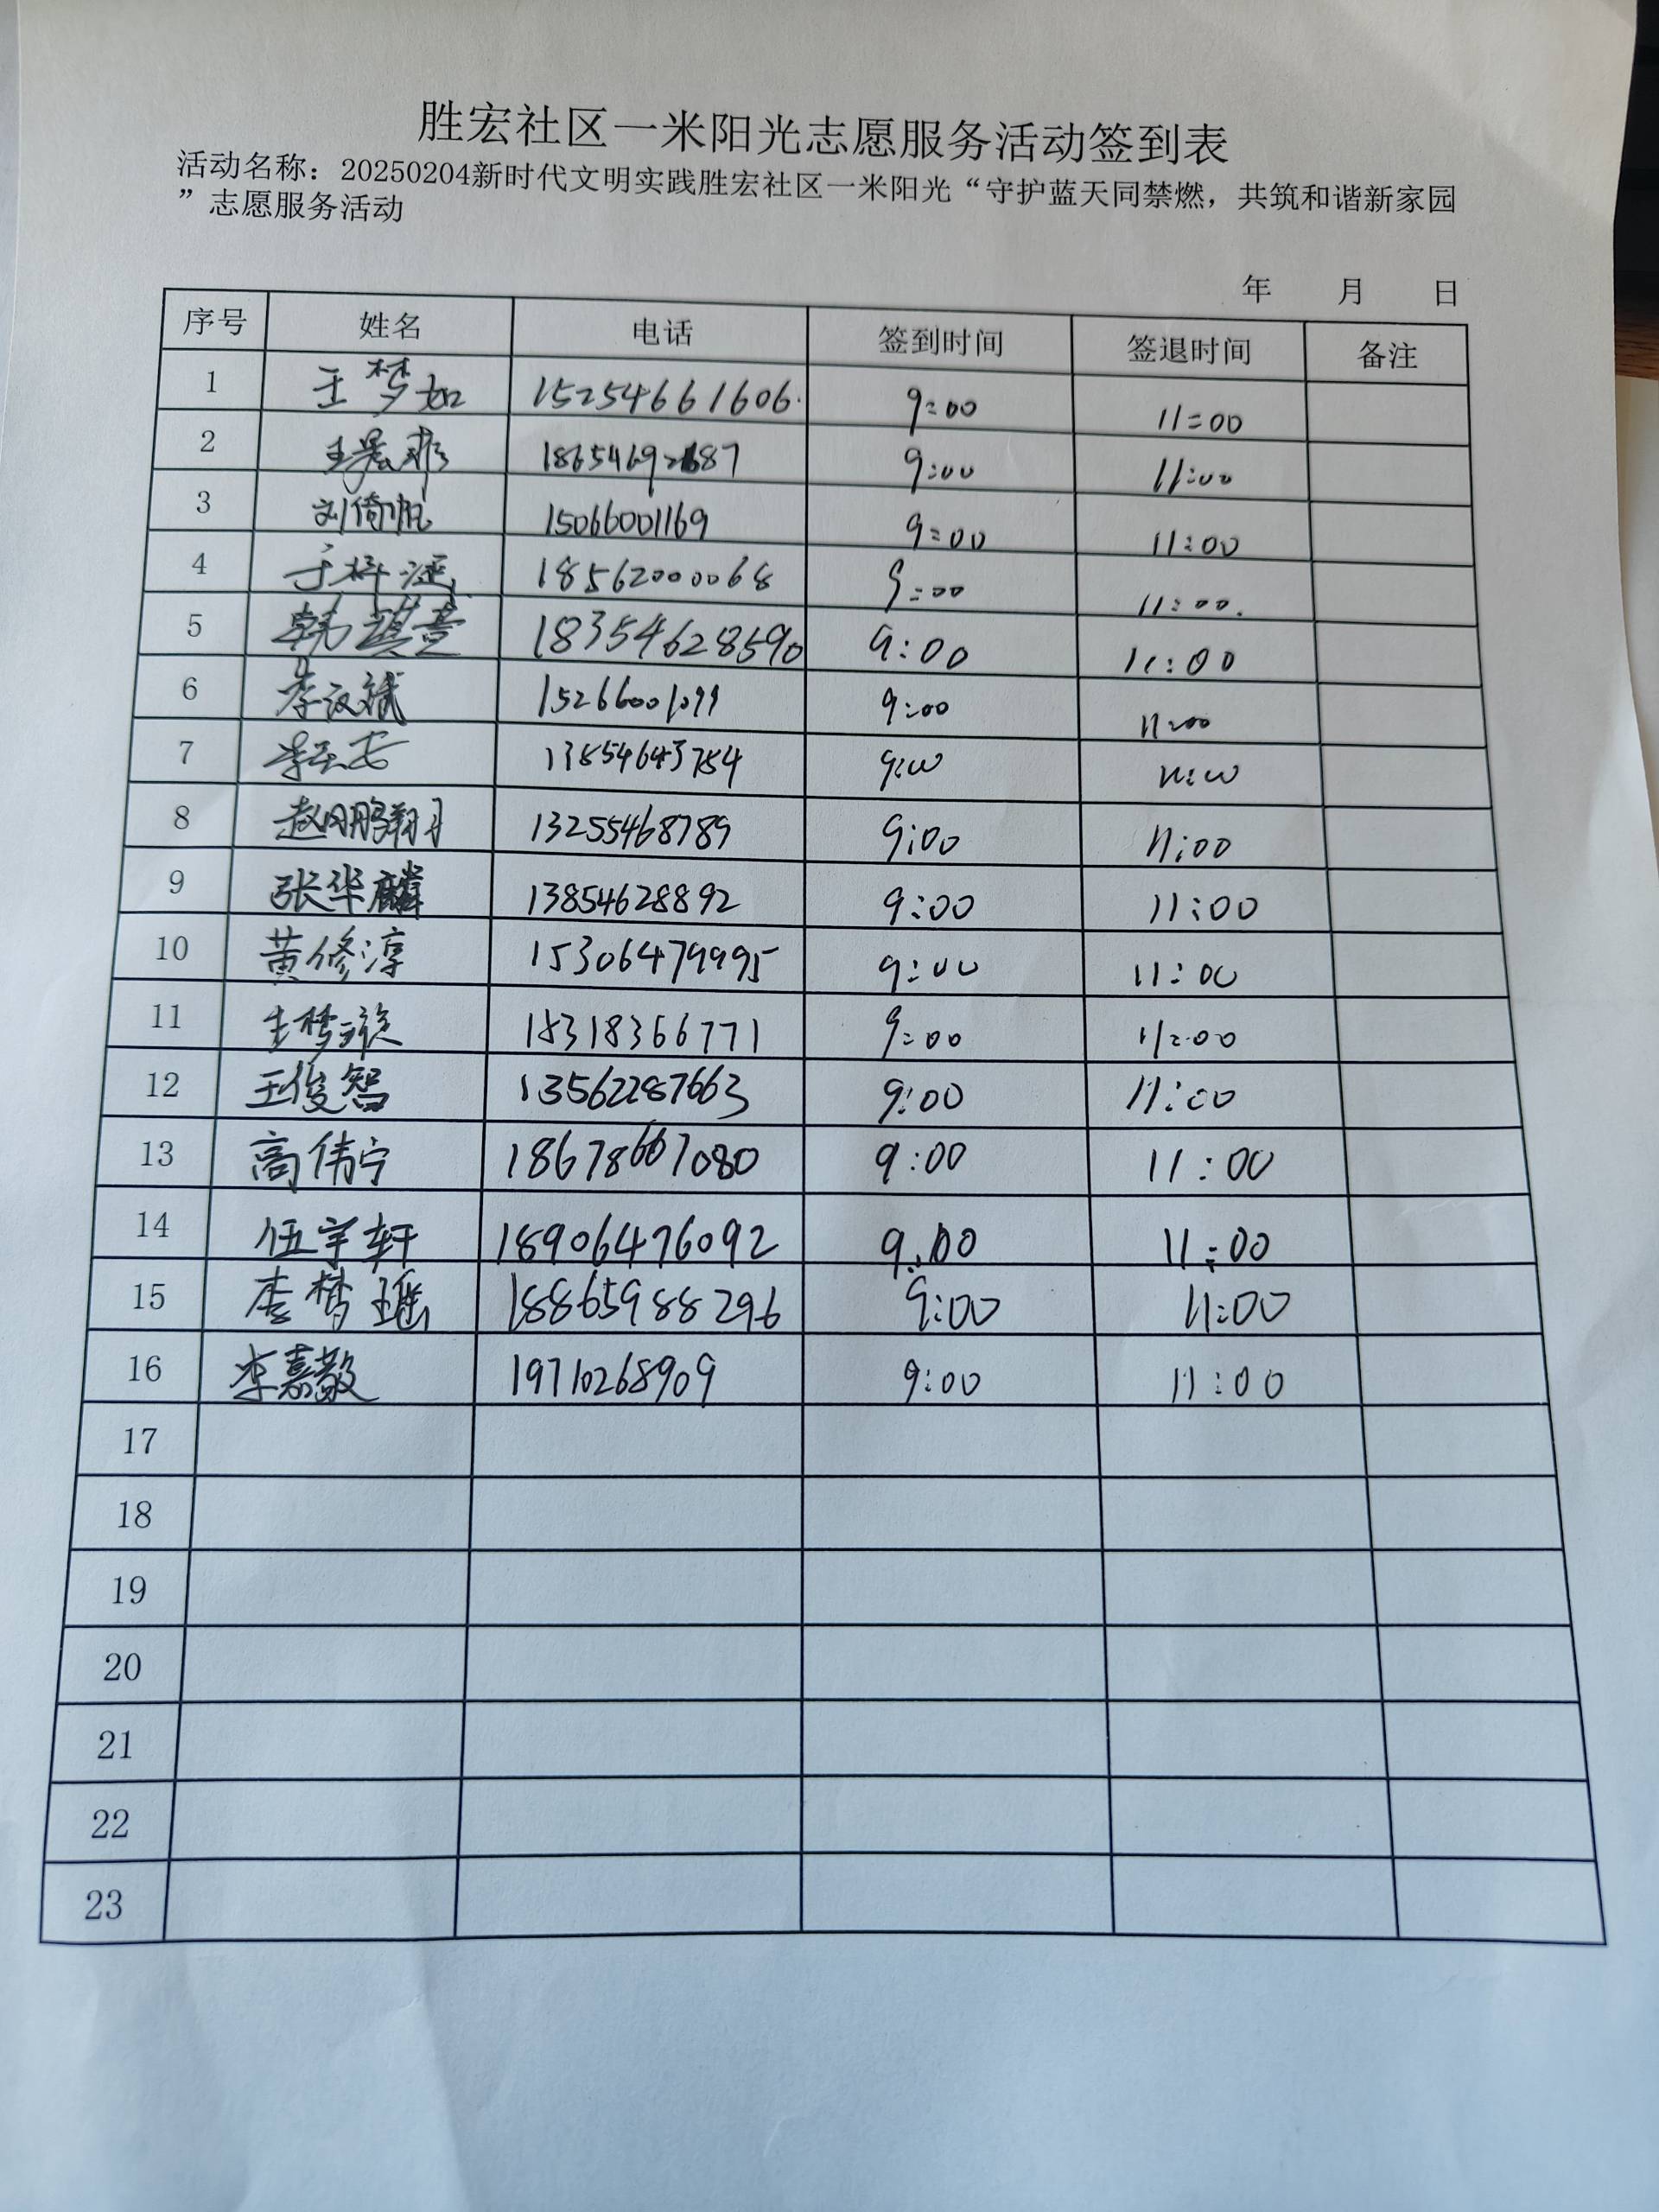 胜宏社区一米阳光志愿服务活动签到表
活动名称：20250204新时代文明实践胜宏社区一米阳光“守护蓝天同禁燃，共筑和谐新家园
”志愿服务活动
年 月 日
序号 姓名 电话 签到时间 签退时间 备注
1 王梦如 15254661606 9:00 11:00
2 9:00 11:00
3 刘倚帆 15066001169 9:00 11:00
4 18562000068 9:00 11:00
5 韩琪萱 18354628590 9:00 11:00
6 李汶斌 9:00 11:00
7 13854643784 9:00 11:00
8 13255468789 9:00 11:00
9 张华麟 13854628892 9:00 11:00
10 黄修淳 15306479995 9:00 11:00
11 18318366771 9:00 11:00
12 王俊智 13562287663 9:00 11:00
13 高伟宁 18678667080 9:00 11:00
14 伍宇轩 18906476092 9:00 11:00
15 李梦瑶 18865988296 9:00 11:00
16 李嘉敏 19710268909 9:00 11:00
17
18
19
20
21
22
23